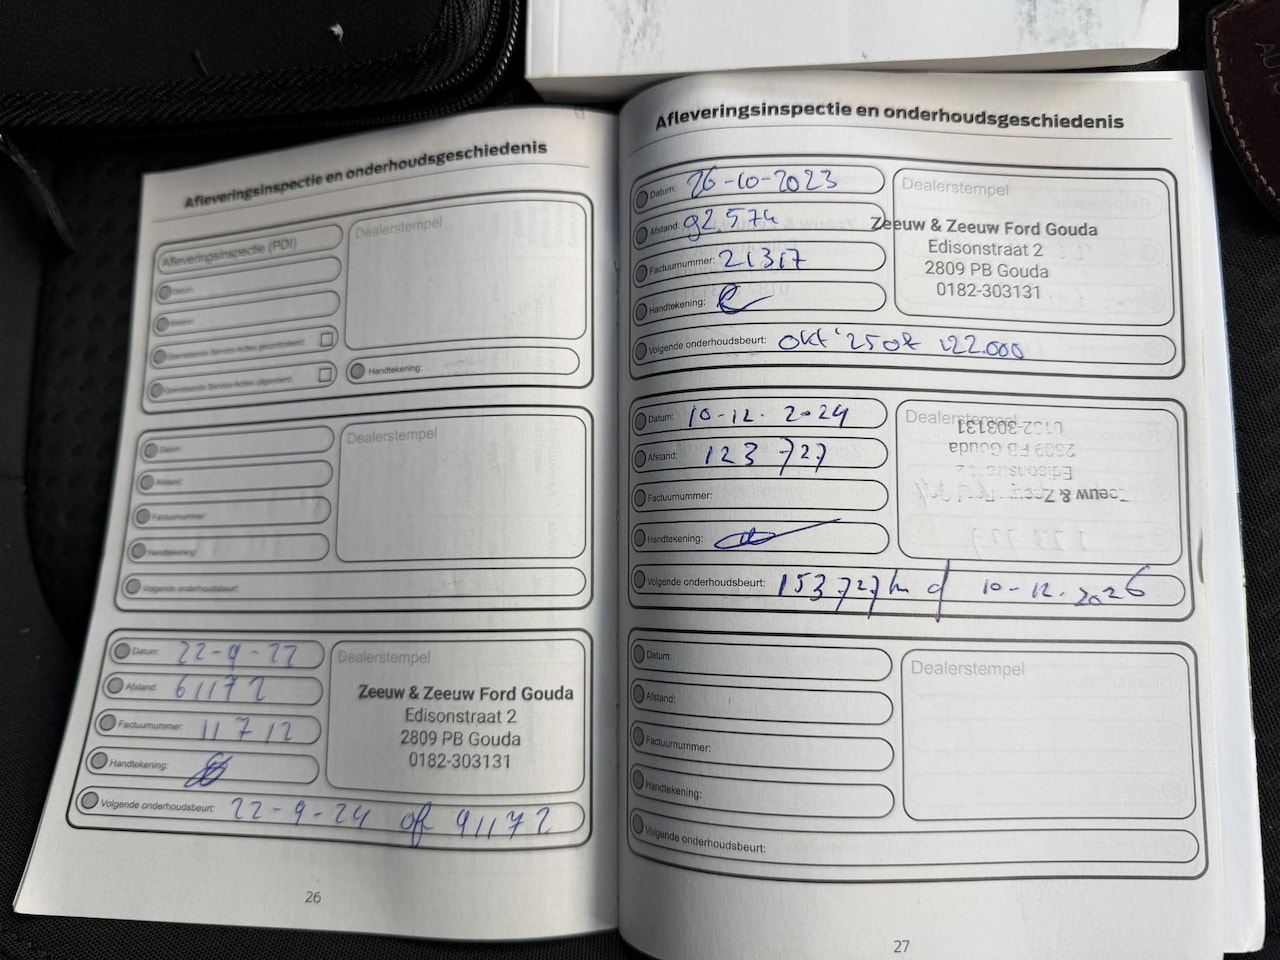 Afleveringsinspectie en onderhoudsgeschiedenis
Afleveringsinspectie (PDI)
Datum:
Afstand:
Handtekening:
Dealerstempel
Datum:
Afstand:
Factuurnummer:
Handtekening:
Volgende onderhoudsbeurt:
Dealerstempel
Datum: 22-9-22
Afstand: 61172
Factuurnummer: 11712
Handtekening:
Volgende onderhoudsbeurt: 22-9-24 of 91172
Dealerstempel
Zeeuw & Zeeuw Ford Gouda
Edisonstraat 2
2809 PB Gouda
0182-303131
26
Afleveringsinspectie en onderhoudsgeschiedenis
Datum: 26-10-2023
Afstand: 92.574
Factuurnummer: 21317
Handtekening:
Volgende onderhoudsbeurt: okt '25 of 122.000
Dealerstempel
Zeeuw & Zeeuw Ford Gouda
Edisonstraat 2
2809 PB Gouda
0182-303131
Datum: 10-12-2024
Afstand: 123727
Factuurnummer:
Handtekening:
Volgende onderhoudsbeurt: 153727 km of 10-12-2026
Dealerstempel
Zeeuw & Zeeuw
Edisonstraat 2
2809 PB Gouda
0182-303131
Datum:
Afstand:
Factuurnummer:
Handtekening:
Volgende onderhoudsbeurt:
Dealerstempel
27